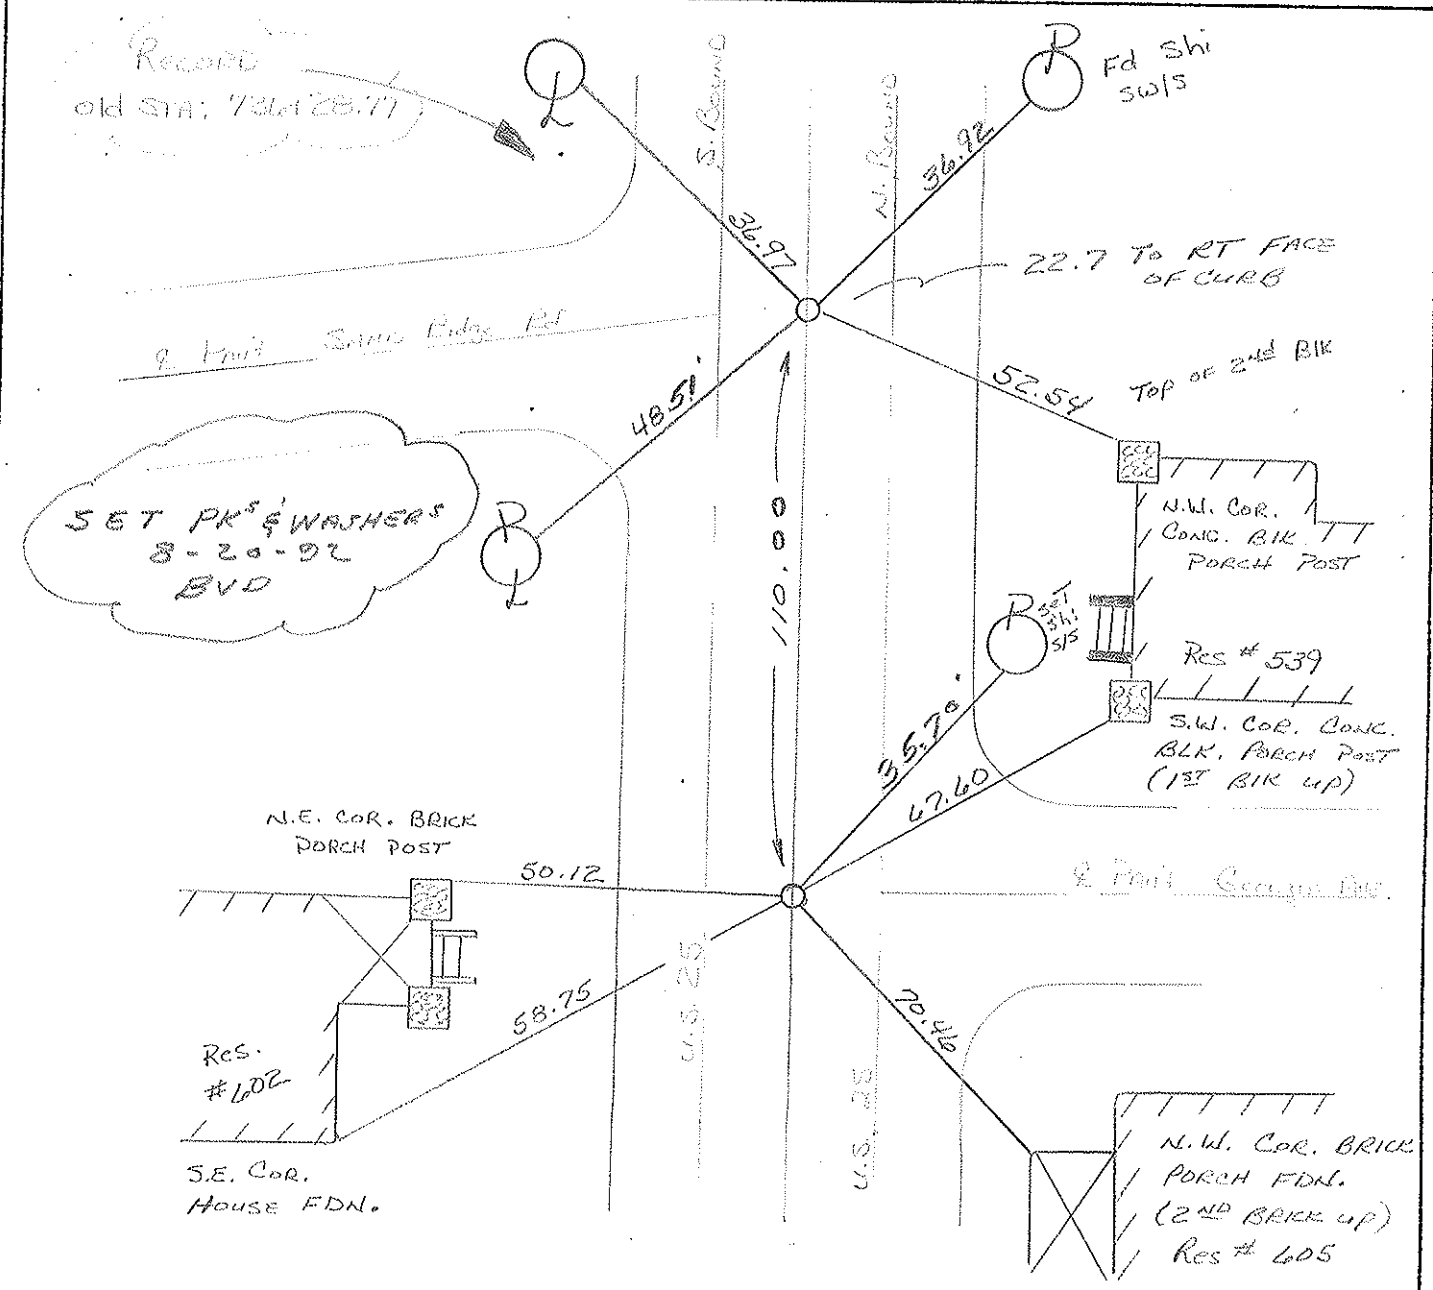 RECORD
old STA: 736+28.77
P
Fd Shi
SW/S
S. Bound
N. Bound
36.97
36.92
22.7 To RT FACE
OF CURB
℄ Pmt Sand Ridge Rd
48.51'
52.54
Top of 2nd Blk
SET PKS & WASHERS
8-20-92
BVD
P
110.00
N.W. COR.
CONC. Blk.
PORCH POST
P
SET
Shi
S/S
Res # 539
S.W. COR. CONC.
BLK. PORCH POST
(1ST Blk up)
35.70'
67.60
N.E. COR. BRICK
PORCH POST
50.12
℄ Pmt Georgia Ave.
58.75
U.S. 25
U.S. 25
70.46
Res.
#602
S.E. COR.
HOUSE FDN.
N.W. COR. BRICK
PORCH FDN.
(2ND BRICK UP)
Res # 605